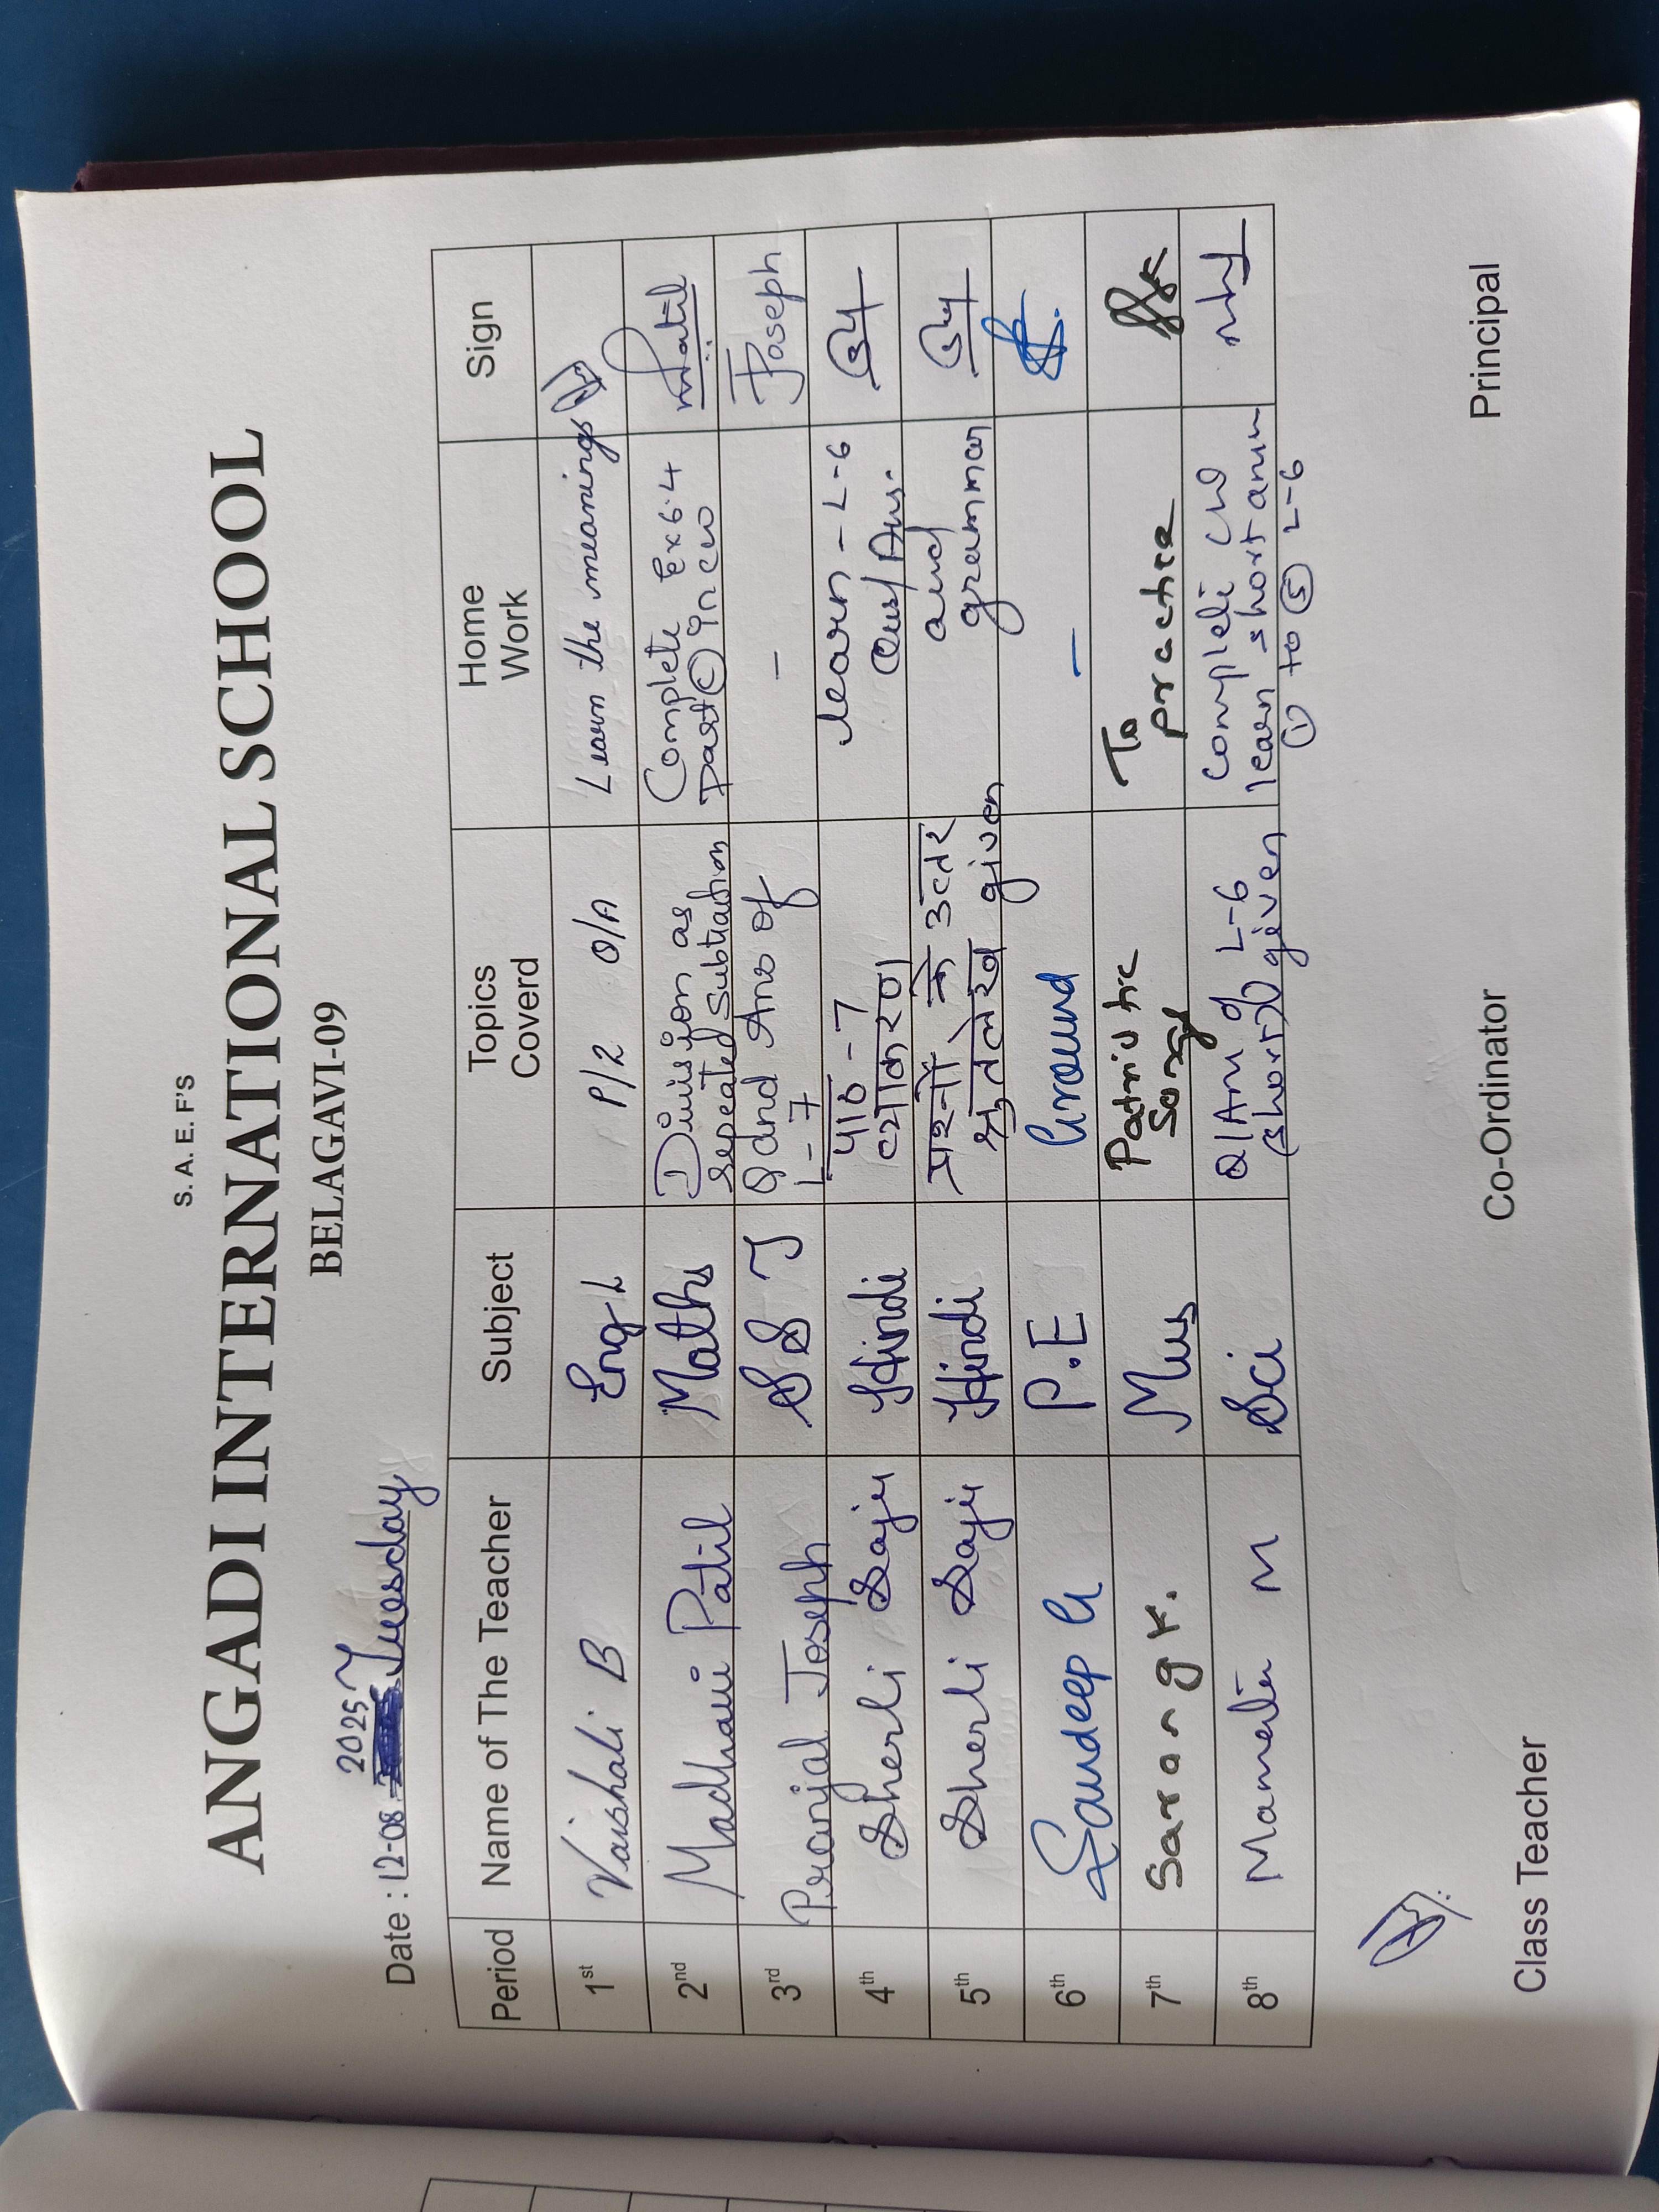 S. A. E. F'S
ANGADI INTERNATIONAL SCHOOL
BELAGAVI-09
Date : 12-08-2025 Tuesday
Period Name of The Teacher Subject Topics Coverd Home Work Sign
1st Vaishali B Eng L P/2 Q/A Learn the meanings
2nd Madhavi Patil Maths Division as repeated subtraction Complete Ex 6.4 Part (C) in CW Patil
3rd Pranjal Joseph S S T Q and Ans of L-7 - Joseph
4th Sherli Saju Hindi पाठ-7 व्याकरण learn - L-6 Ques/Ans.
5th Sherli Saju Hindi प्रश्नों के उत्तर श्रुतलेख given and grammar
6th Sandeep G P.E Ground -
7th Sarang K. Mus Patriotic Song To practice
8th M Sci Q/Ans of L-6 (short) given Complete CW learn short ans (1) to (5) L-6
Class Teacher Co-Ordinator Principal